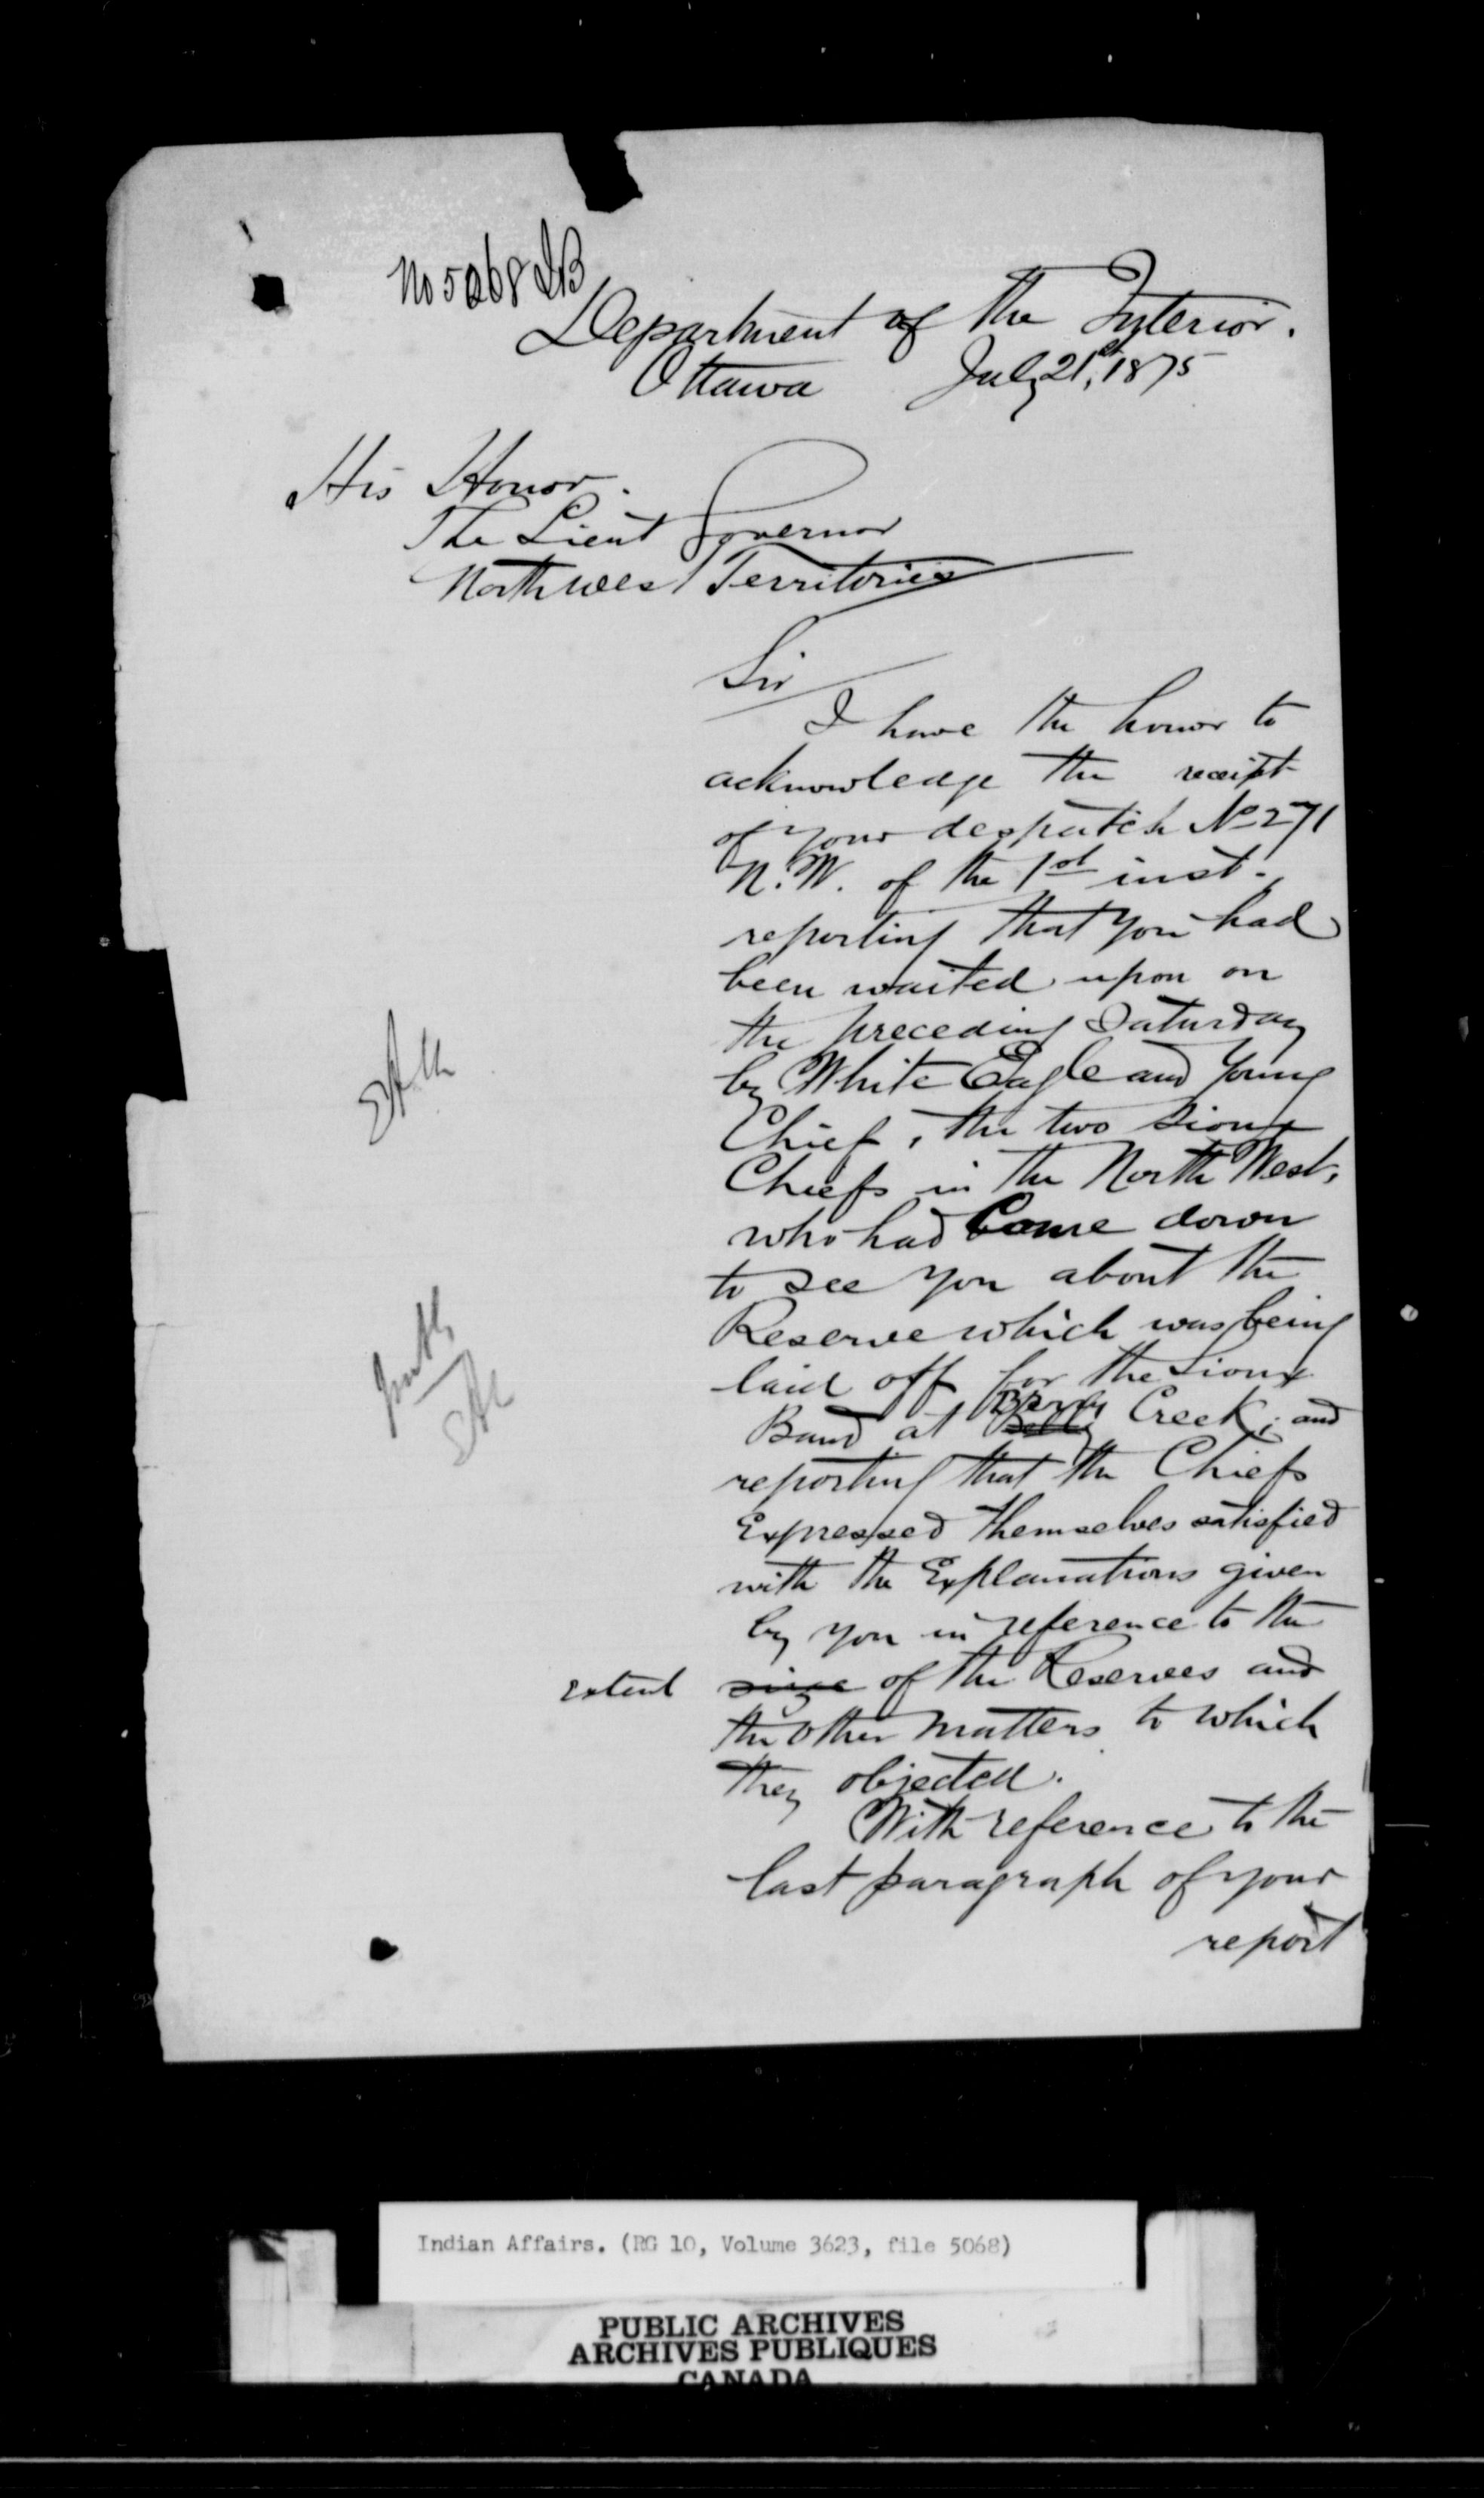 No 5068 IB
Department of the Interior.
Ottawa July 21st, 1875
His Honor.
The Lieut Governor
North West Territories
Sir
I have the honor to
acknowledge the receipt
of your despatch No 271
N.W. of the 1st inst.
reporting that you had
been waited upon on
the preceding Saturday
by White Eagle and Young
Chief, the two Sioux
Chiefs in the North West,
who had Come down
to see you about the
Reserve which was being
laid off for the Sioux
Band at Birdy Creek; and
reporting that the Chiefs
Expressed themselves satisfied
with the Explanations given
by you in reference to the
extent size of the Reserves and
the other matters to which
they objected.
With reference to the
last paragraph of your
report
Indian Affairs. (RG 10, Volume 3623, file 5068)
PUBLIC ARCHIVES
ARCHIVES PUBLIQUES
CANADA